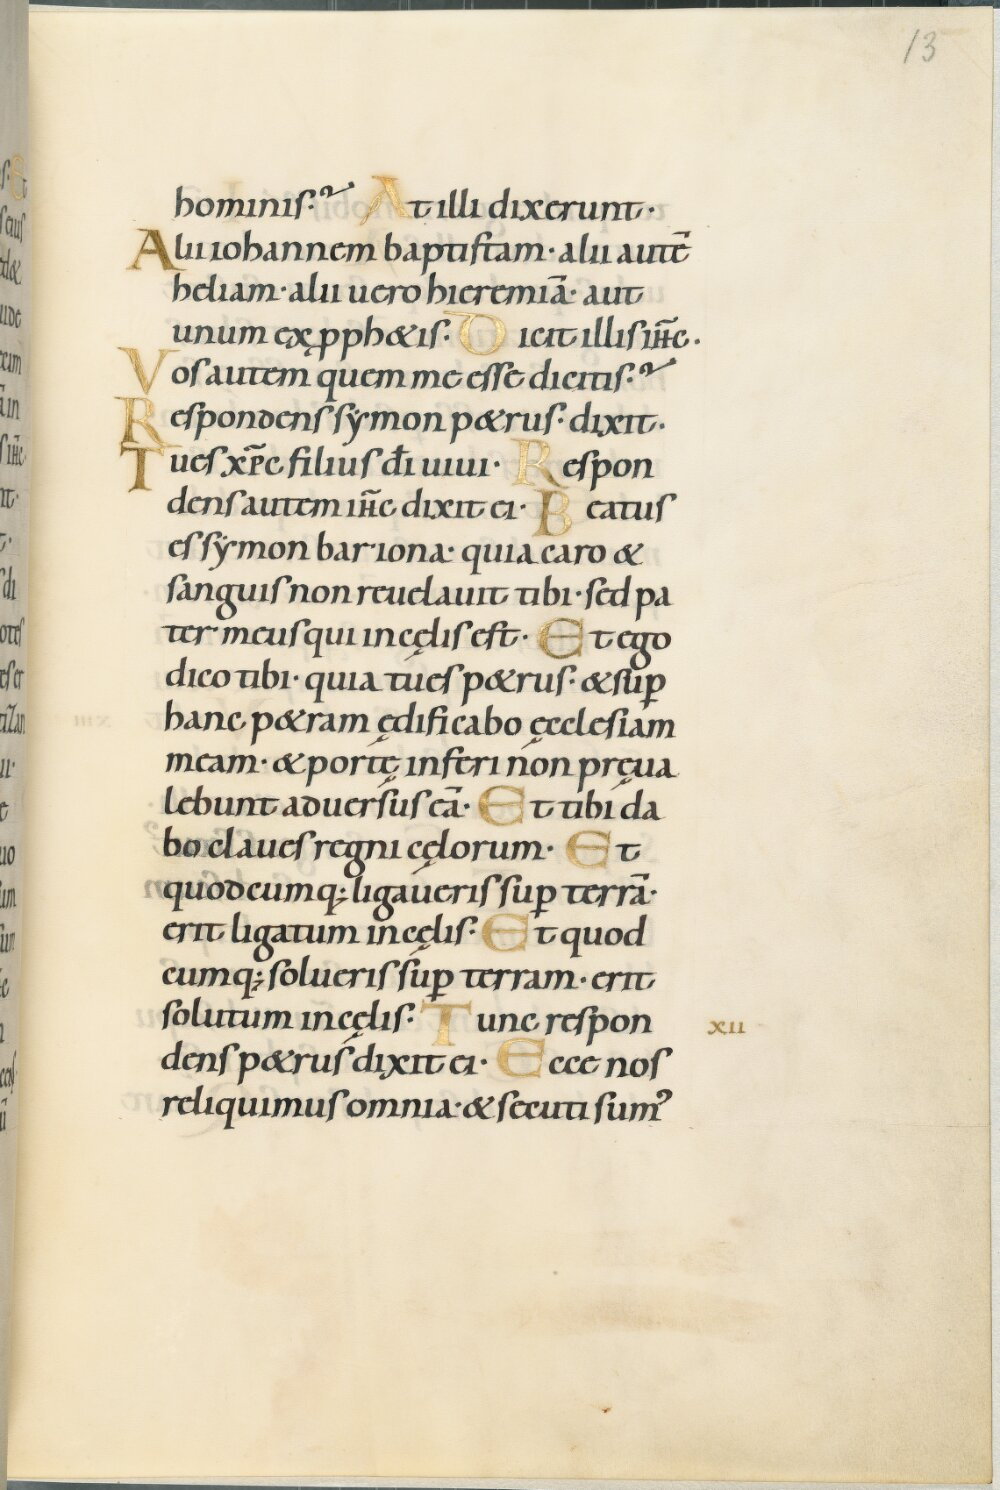 13
hominis· At illi dixerunt·
Alii iohannem baptistam· alii autē
heliam· alii uero hieremiā· aut
unum ex pph&is· Dicit illis ih̅c·
Vos autem quem me esse dicitis·
Respondens sẏmon p&rus· dixit·
Tu es xp̅c filius dī uiui· Respon
dens autem ih̅c dixit ei· Beatus
es sẏmon bar iona· quia caro &
sanguis non reuelauit tibi· sed pa
ter meus qui in cęlis est· Et ego
dico tibi· quia tu es p&rus· & sup̱
hanc p&ram ędificabo ęcclesiam
meam· & portę inferi non pręua
lebunt aduersus eā· Et tibi da
bo claues regni cęlorum· Et
quodcumq; ligaueris sup̱ terrā·
erit ligatum in cęlis· Et quod
cumq; solueris sup̱ terram· erit
solutum in cęlis· Tunc respon
xii
dens p&rus dixit ei· Ecce nos
reliquimus omnia· & secuti sumꝰ